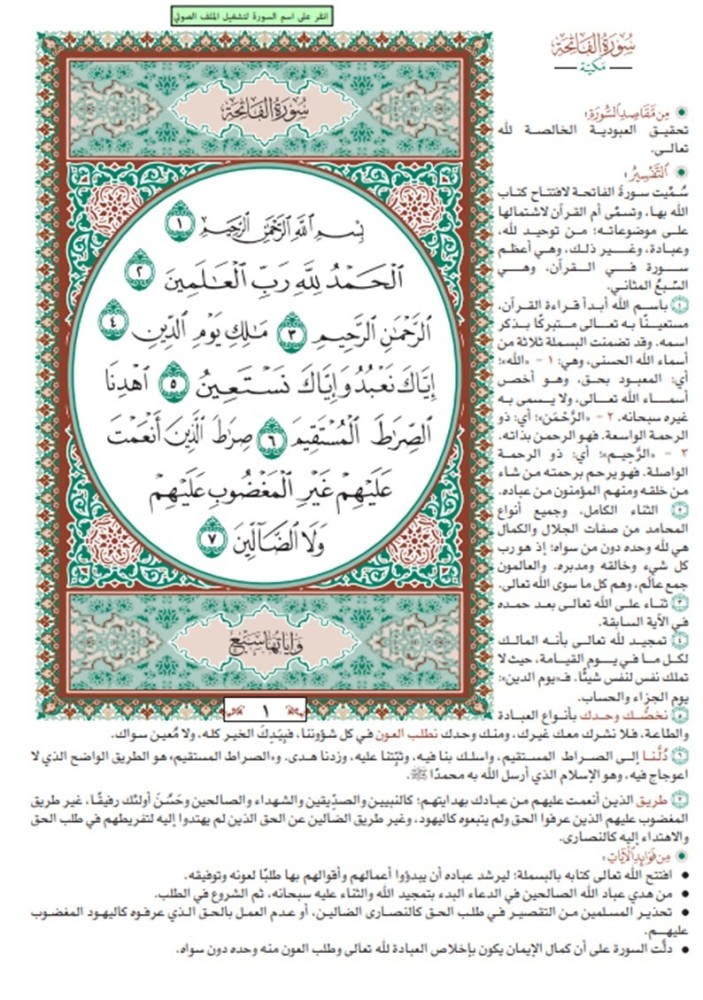 انقر على اسم السورة لتشغيل الملف الصوتي
سُورَةُ الفَاتِحَةِ
مَكيّة
سُورَةُ الفَاتِحَةِ
بِسْمِ ٱللَّهِ ٱلرَّحْمَٰنِ ٱلرَّحِيمِ ١
ٱلْحَمْدُ لِلَّهِ رَبِّ ٱلْعَٰلَمِينَ ٢
ٱلرَّحْمَٰنِ ٱلرَّحِيمِ ٣ مَٰلِكِ يَوْمِ ٱلدِّينِ ٤
إِيَّاكَ نَعْبُدُ وَإِيَّاكَ نَسْتَعِينُ ٥ ٱهْدِنَا
ٱلصِّرَٰطَ ٱلْمُسْتَقِيمَ ٦ صِرَٰطَ ٱلَّذِينَ أَنْعَمْتَ
عَلَيْهِمْ غَيْرِ ٱلْمَغْضُوبِ عَلَيْهِمْ
وَلَا ٱلضَّآلِّينَ ٧
وَآيَاتُهَا سَبْع
١
• مِن مَّقَاصِدِ السُّورَةِ:
تحقيق العبودية الخالصة لله
تعالى.
• التَّفْسِيرُ:
سُمِّيت سورة الفاتحة لافتتاح كتاب
الله بها، وتسمَّى أم القرآن لاشتمالها
على موضوعاته؛ من توحيد لله،
وعبادة، وغير ذلك، وهي أعظم
سورة في القرآن، وهي
السَّبعُ المثاني.
١ باسم الله أبدأ قراءة القرآن،
مستعينًا به تعالى متبركًا بذكر
اسمه. وقد تضمنت البسملة ثلاثة من
أسماء الله الحسنى، وهي: ١ - «الله»؛
أي: المعبود بحق، وهو أخص
أسماء الله تعالى، ولا يسمى به
غيره سبحانه. ٢ - «الرَّحْمَن»؛ أي: ذو
الرحمة الواسعة. فهو الرحمن بذاته.
٣ - «الرَّحِيم»؛ أي: ذو الرحمة
الواصلة. فهو يرحم برحمته من شاء
من خلقه ومنهم المؤمنون من عباده.
٢ الثناء الكامل، وجميع أنواع
المحامد من صفات الجلال والكمال
هي لله وحده دون من سواه؛ إذ هو رب
كل شيء وخالقه ومدبره. والعالمون
جمع عالَم، وهم كل ما سوى الله تعالى.
٣ ثناء على الله تعالى بعد حمده
في الآية السابقة.
٤ تمجيد لله تعالى بأنه المالك
لكل ما في يوم القيامة، حيث لا
تملك نفس لنفس شيئًا. فـ«يوم الدين»:
يوم الجزاء والحساب.
٥ نخصُّك وحدك بأنواع العبادة
والطاعة، فلا نشرك معك غيرك، ومنك وحدك نطلب العون في كل شؤوننا، فبِيَدِكَ الخير كله، ولا مُعين سواك.
٦ دُلَّنا إلى الصراط المستقيم، واسلك بنا فيه، وثبّتنا عليه، وزدنا هدى. و«الصراط المستقيم» هو الطريق الواضح الذي لا
اعوجاج فيه، وهو الإسلام الذي أرسل الله به محمدًا ﷺ.
٧ طريق الذين أنعمت عليهم من عبادك بهدايتهم؛ كالنبيين والصدّيقين والشهداء والصالحين وحَسُنَ أولئك رفيقًا، غير طريق
المغضوب عليهم الذين عرفوا الحق ولم يتبعوه كاليهود، وغير طريق الضالين عن الحق الذين لم يهتدوا إليه لتفريطهم في طلب الحق
والاهتداء إليه كالنصارى.
• مِن فَوَائِدِ الآيَاتِ:
• افتتح الله تعالى كتابه بالبسملة؛ ليرشد عباده أن يبدؤوا أعمالهم وأقوالهم بها طلبًا لعونه وتوفيقه.
• من هدي عباد الله الصالحين في الدعاء البدء بتمجيد الله والثناء عليه سبحانه، ثم الشروع في الطلب.
• تحذير المسلمين من التقصير في طلب الحق كالنصارى الضالين، أو عدم العمل بالحق الذي عرفوه كاليهود المغضوب
عليهم.
• دلَّت السورة على أن كمال الإيمان يكون بإخلاص العبادة لله تعالى وطلب العون منه وحده دون سواه.